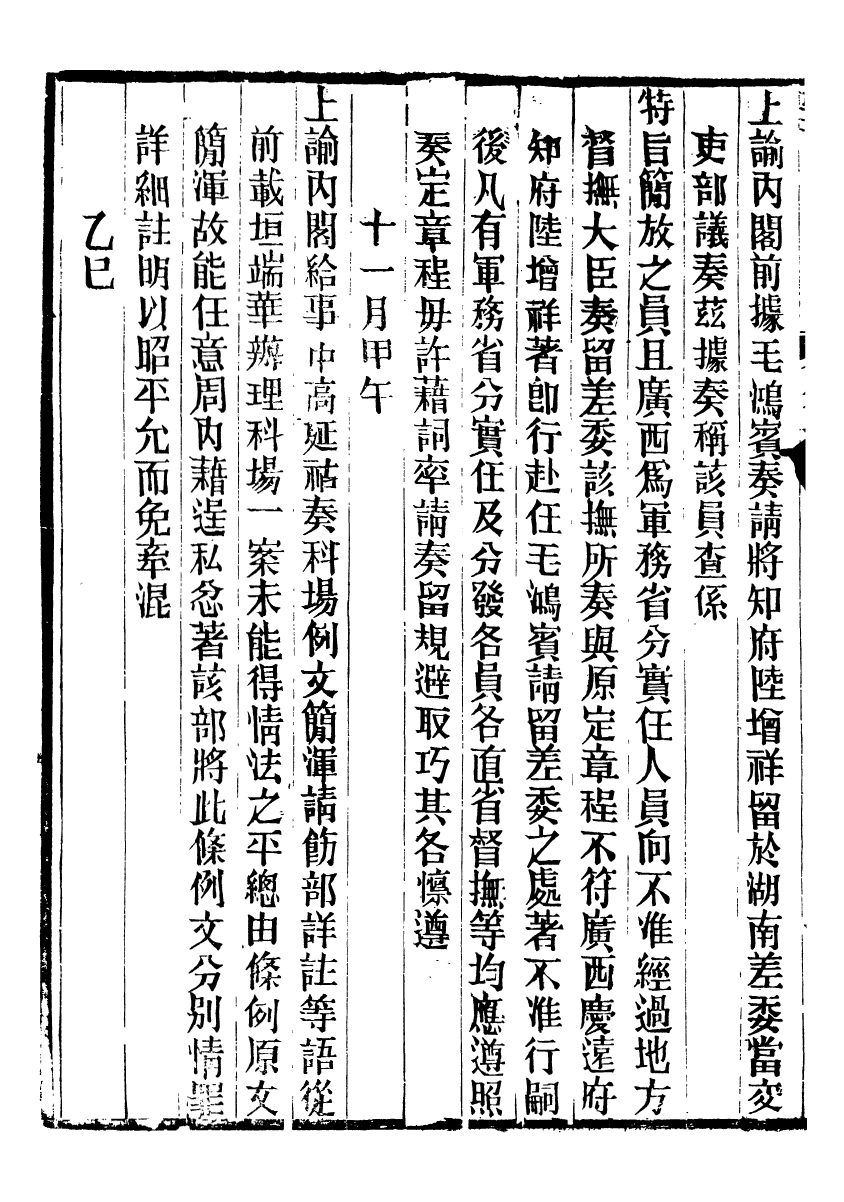 上諭內閣前據毛鴻賓奏請將知府陸增祥留於湖南差委當交
吏部議奏茲據奏稱該員查係
特旨簡放之員且廣西爲軍務省分實任人員向不准經過地方
督撫大臣奏留差委該撫所奏與原定章程不符廣西慶遠府
知府陸增祥著卽行赴任毛鴻賓請留差委之處著不准行嗣
後凡有軍務省分實任及分發各員各直省督撫等均應遵照
奏定章程毋許藉詞率請奏留規避取巧其各懍遵
十一月甲午
上諭內閣給事中高延祜奏科場例文簡渾請飭部詳註等語從
前載垣端華辦理科場一案未能得情法之平總由條例原文
簡渾故能任意周內藉逞私忿著該部將此條例文分別情罪
詳細註明以昭平允而免牽混
乙巳